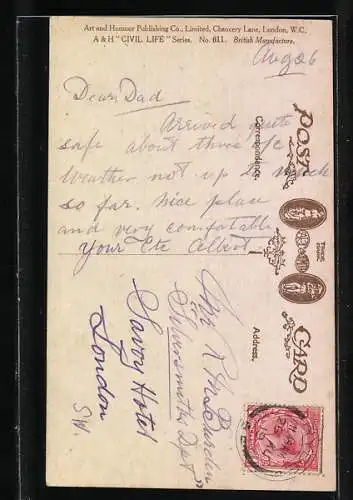 Art and Humour Publishing Co., Limited, Chancery Lane, London, W.C.
A & H "CIVIL LIFE" Series. No. 611. British Manufacture.
Aug 26
Dear Dad
Arrived quite
safe about three o/c
Weather not up to much
so far. Nice place
and very comfatable
Your Etc Albert
POST CARD
Correspondence.
Address.
Mr R H
Silversmiths Dept
Savoy Hotel
London
S.W.